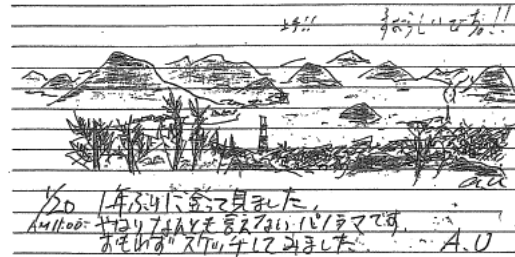 上手!! すばらしいですね!!
a.u
1/20 1年ぶりに登って見ました。
AM11:00 やはりなんとも言えないパノラマです。
おもわずスケッチしてみました。 A.U